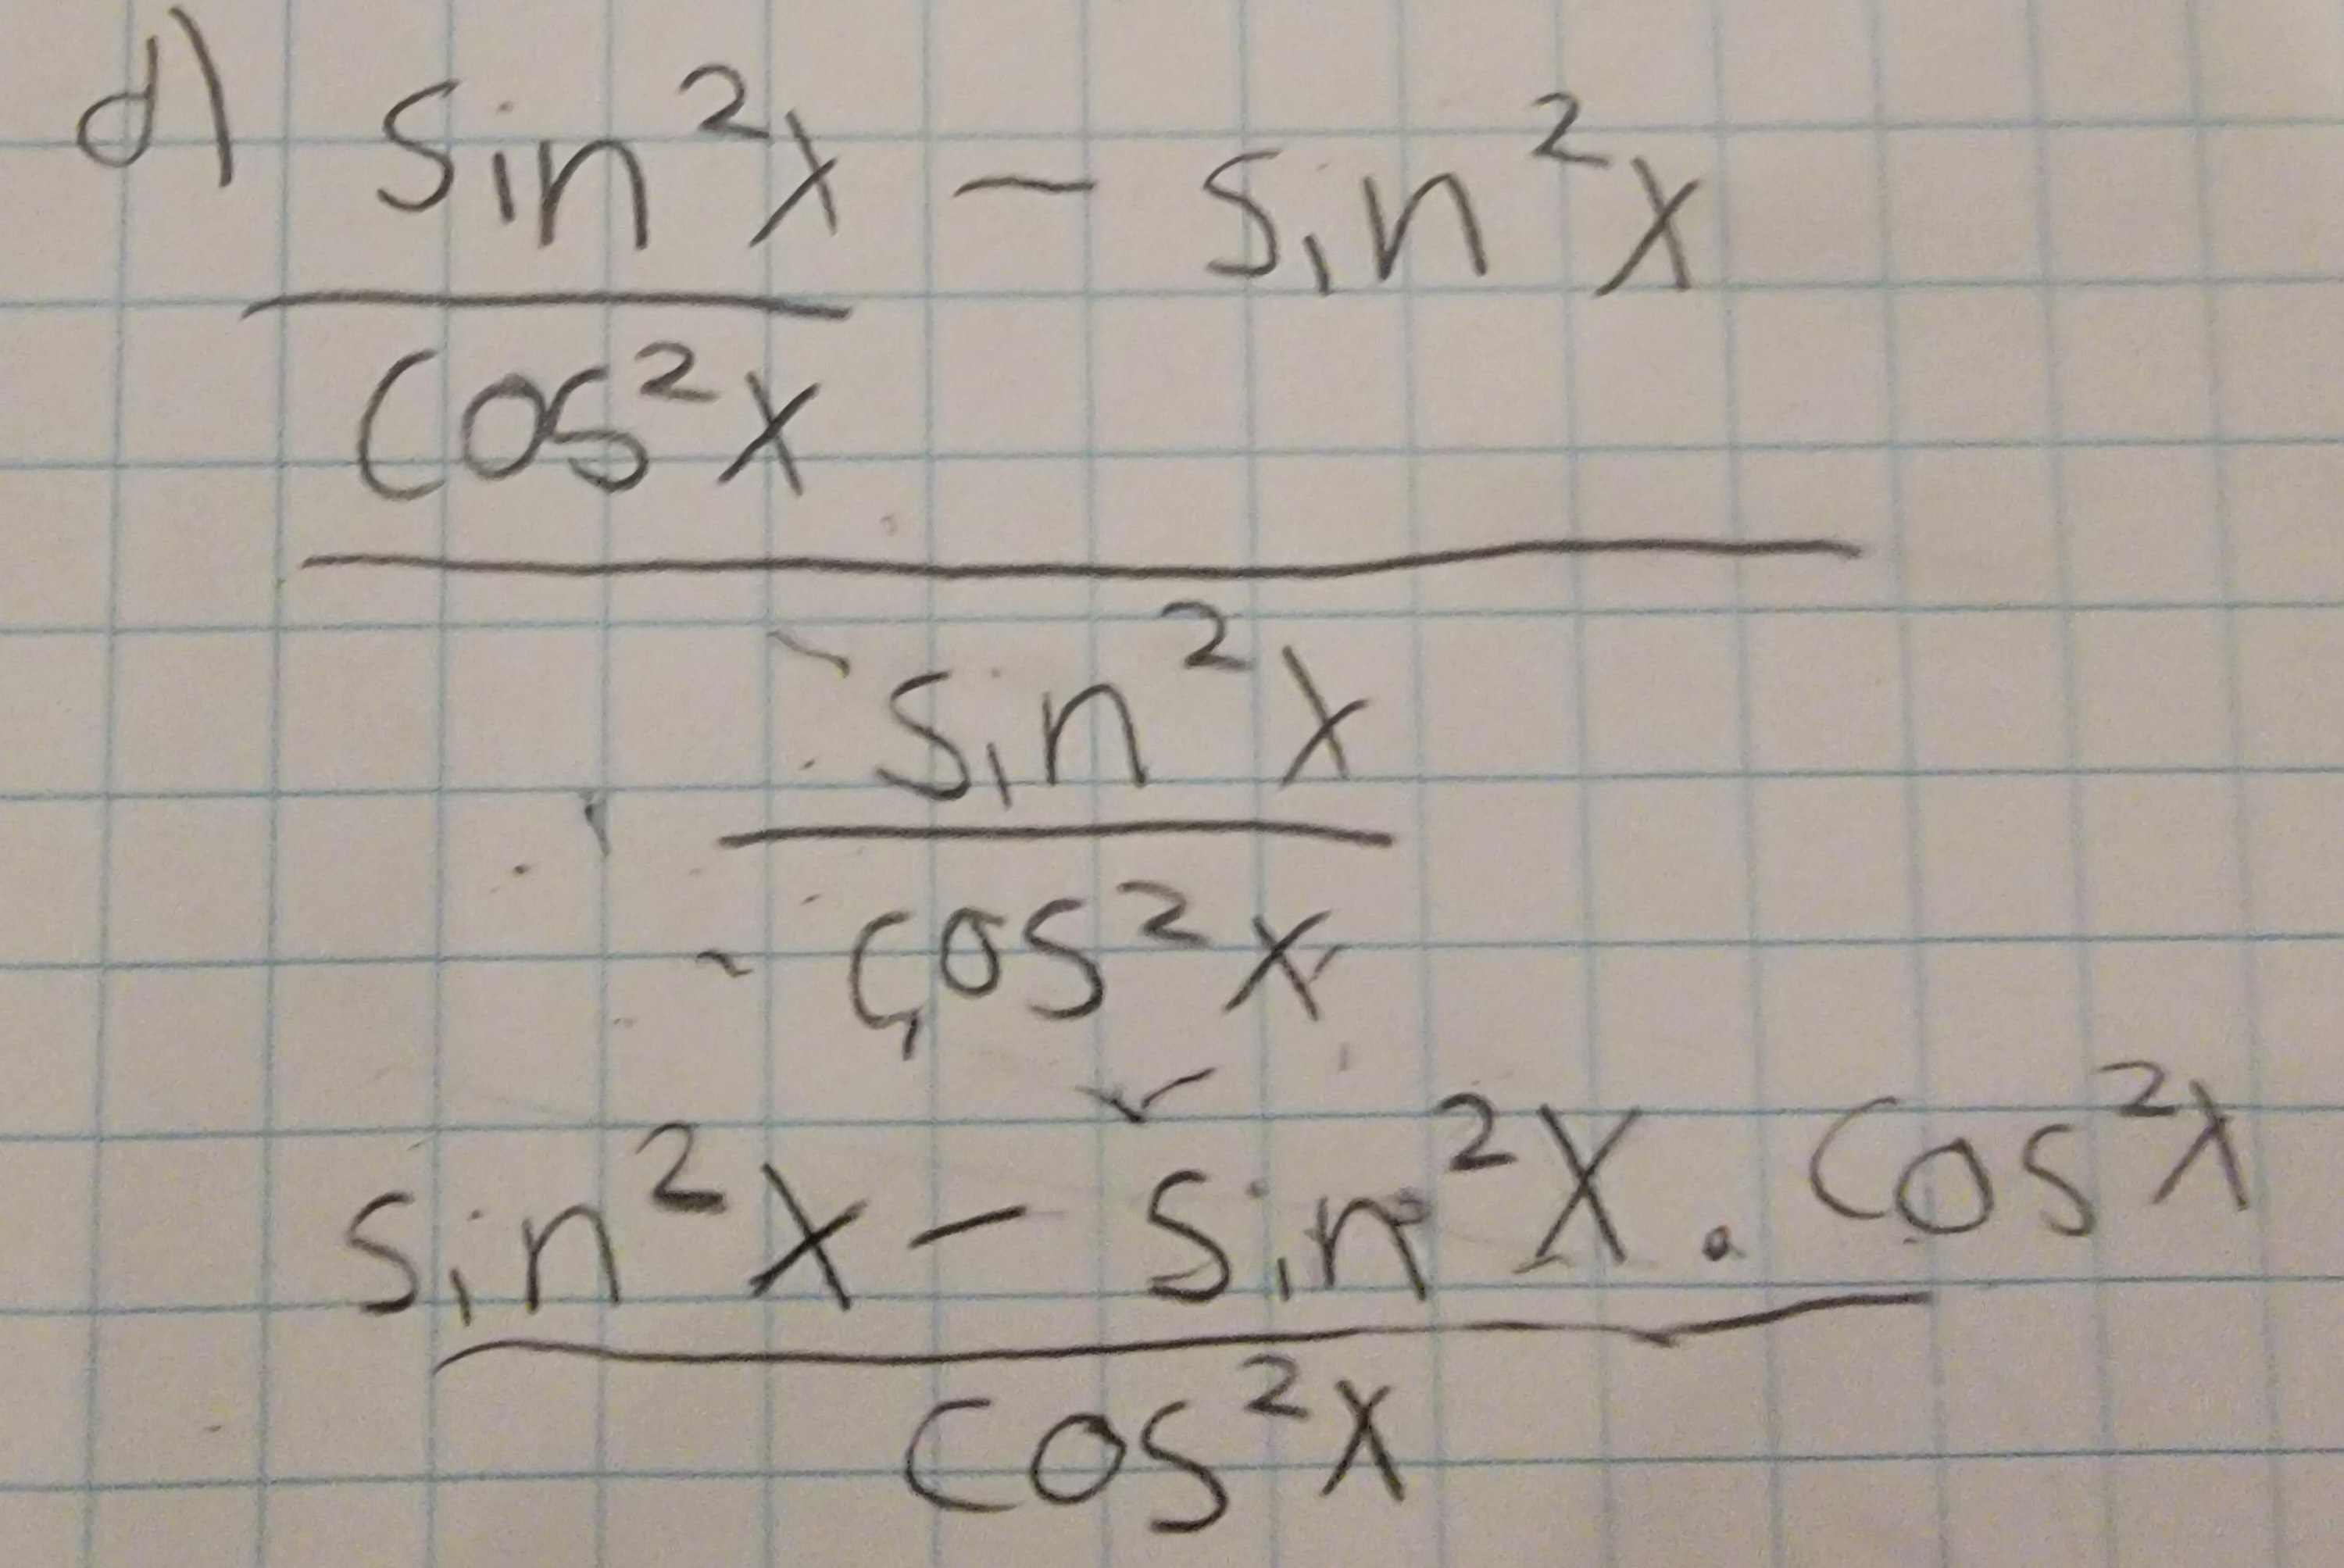 d) sin²x - sin²x
cos²x
sin²x
cos²x
sin²x - sin²x . cos²x
cos²x